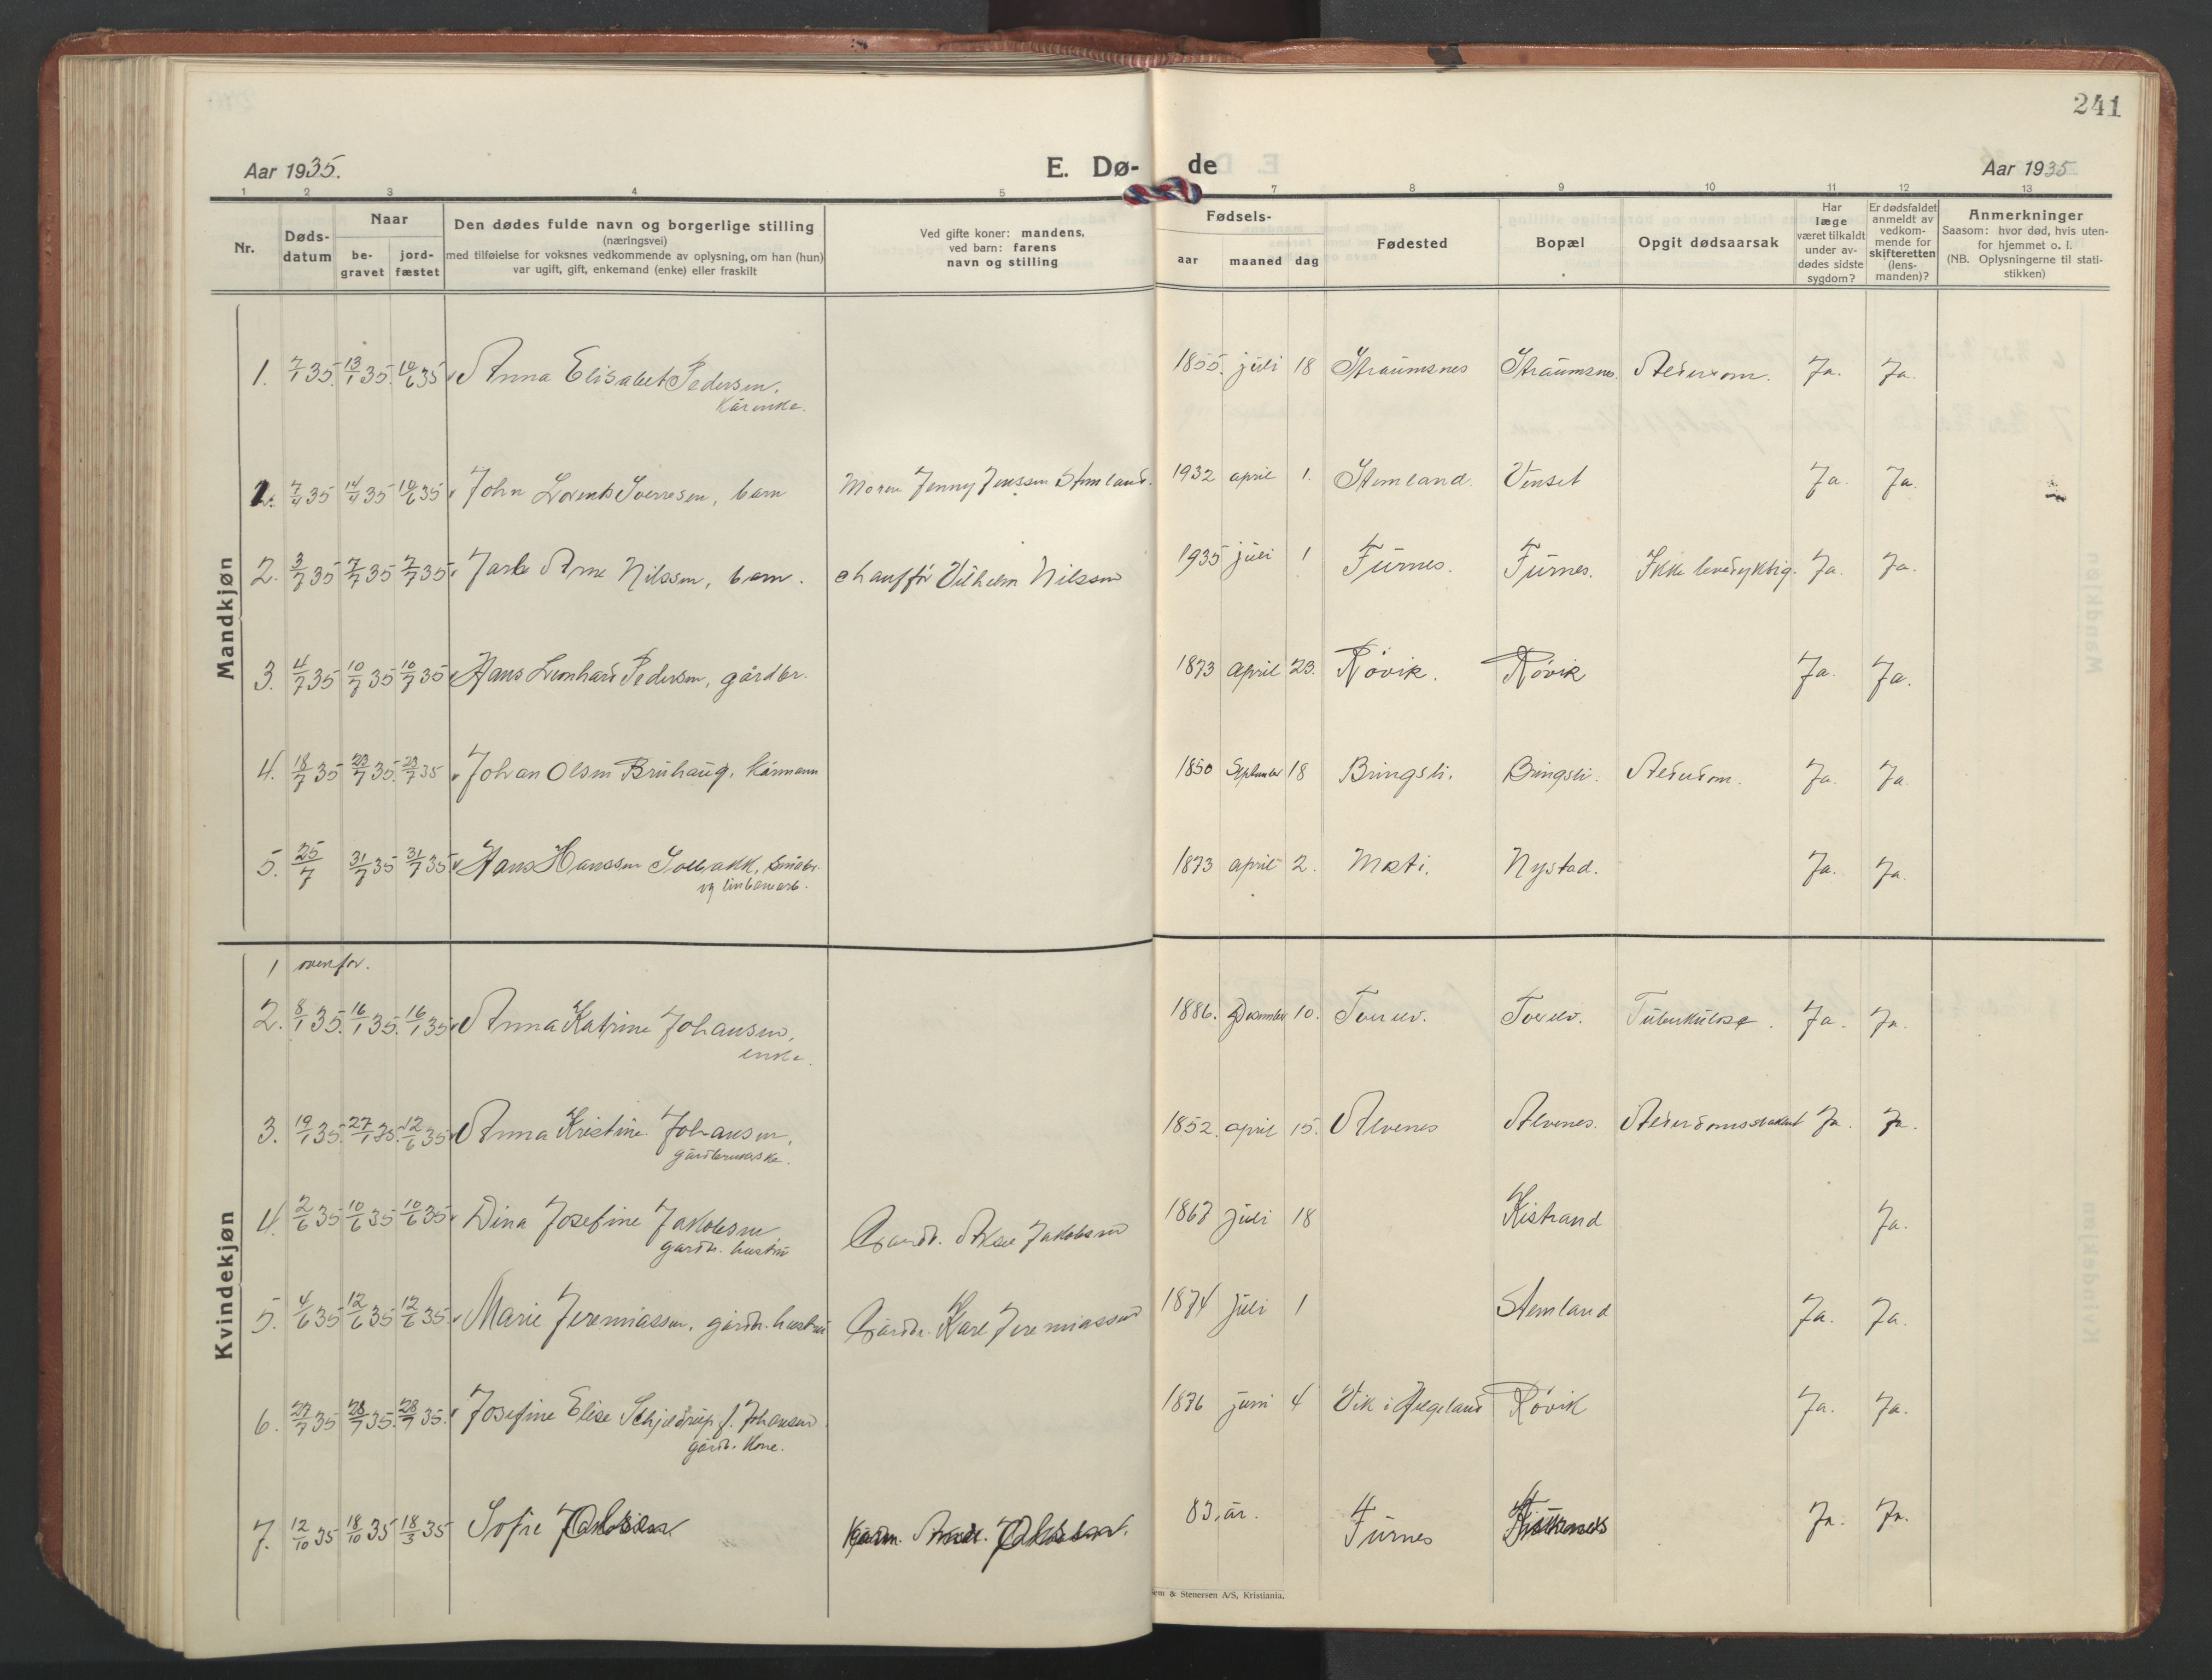 241
Aar 1935.
E. Dø- de
Aar 1935
1 2 3 4 5 7 8 9 10 11 12 13
Nr.
Døds-
datum
Naar
be-
gravet
jord-
fæstet
Den dødes fulde navn og borgerlige stilling
(næringsvei)
med tilføielse for voksnes vedkommende av oplysning, om han (hun)
var ugift, gift, enkemand (enke) eller fraskilt
Ved gifte koner: mandens,
ved barn: farens
navn og stilling
Fødsels-
aar maaned dag
Fødested
Bopæl
Opgit dødsaarsak
Har
læge
været tilkaldt
under av-
dødes sidste
sygdom?
Er dødsfaldet
anmeldt av
vedkom-
mende for
skifteretten
(lens-
manden)?
Anmerkninger
Saasom: hvor død, hvis uten-
for hjemmet o. l.
(NB. Oplysningerne til stati-
stikken)
Mandkjøn
1. 7/1 35. 13/1 35. 10/6 35 Anna Elisabet Pedersen, 1855. juli 18 Straumsnes Straumsnes. Alderdom. Ja. Ja.
kårenke.
7/4 35 14/4 35 10/6 35 John Lorents Sverresen, barn Moren Jenny Jenssen Stemland. 1932 april 1. Stemland. Venset Ja. Ja.
2. 3/7 35 7/7 35 7/7 35 Jarle Arne Nilssen, barn. chauffør Vilhelm Nilssen 1935 juli 1 Furnes. Furnes. Ikke levedyktig. Ja. Ja.
3. 4/7 35 10/7 35 10/7 35 Hans Leonhard Pedersen, gårdbr. 1873 april 23. Røvik. Røvik Ja. Ja.
4. 18/7 35 23/7 35. 23/7 35 Johan Olsen Bruhaug, kårmann 1850 September 18 Bringsli. Bringsli. Alderdom. Ja. Ja.
5. 25/7 31/7 35 31/7 35 Hans Hanssen Solbakk, småbr. 1873 april 2. Nystad. Ja. Ja.
og linbanearb.
Kvindekjøn
1 ovenfor.
2. 8/1 35. 16/1 35. 16/1 35 Anna Katrine Johansen, 1886. Desember 10. Tverelv. Tverelv. Tuberkulose. Ja. Ja.
enke.
3. 19/1 35. 27/1 35. 12/6 35 Anna Kristine Johansen, 1852. april 15. Alvenes Alvenes. Alderdomssvakhet Ja. Ja.
gårdbrukerske.
4. 2/6 35 10/6 35 10/6 35 Dina Josefine Jakobsen Gaardb. Aksel Jakobsen 1867 juli 18 Kistrand Ja.
gardbr. hustru
5. 4/6 35 12/6 35 12/6 35 Marie Jeremiassen, gårdbr. hustru Gårdbr. Karl Jeremiassen 1874 juli 1 Stemland Ja. Ja.
6. 27/7 35 28/7 35. 28/7 35. Josefine Elise Schjeldrup f. Johansen 1876 juni 4 Vik i Helgeland Røvik Ja. Ja.
gårdb. kone.
7. 12/10 35 18/10 35 18/3 35 Sofie 83. år. Furnes Ja. Ja.
em & Stenersen A/S, Kristiania.